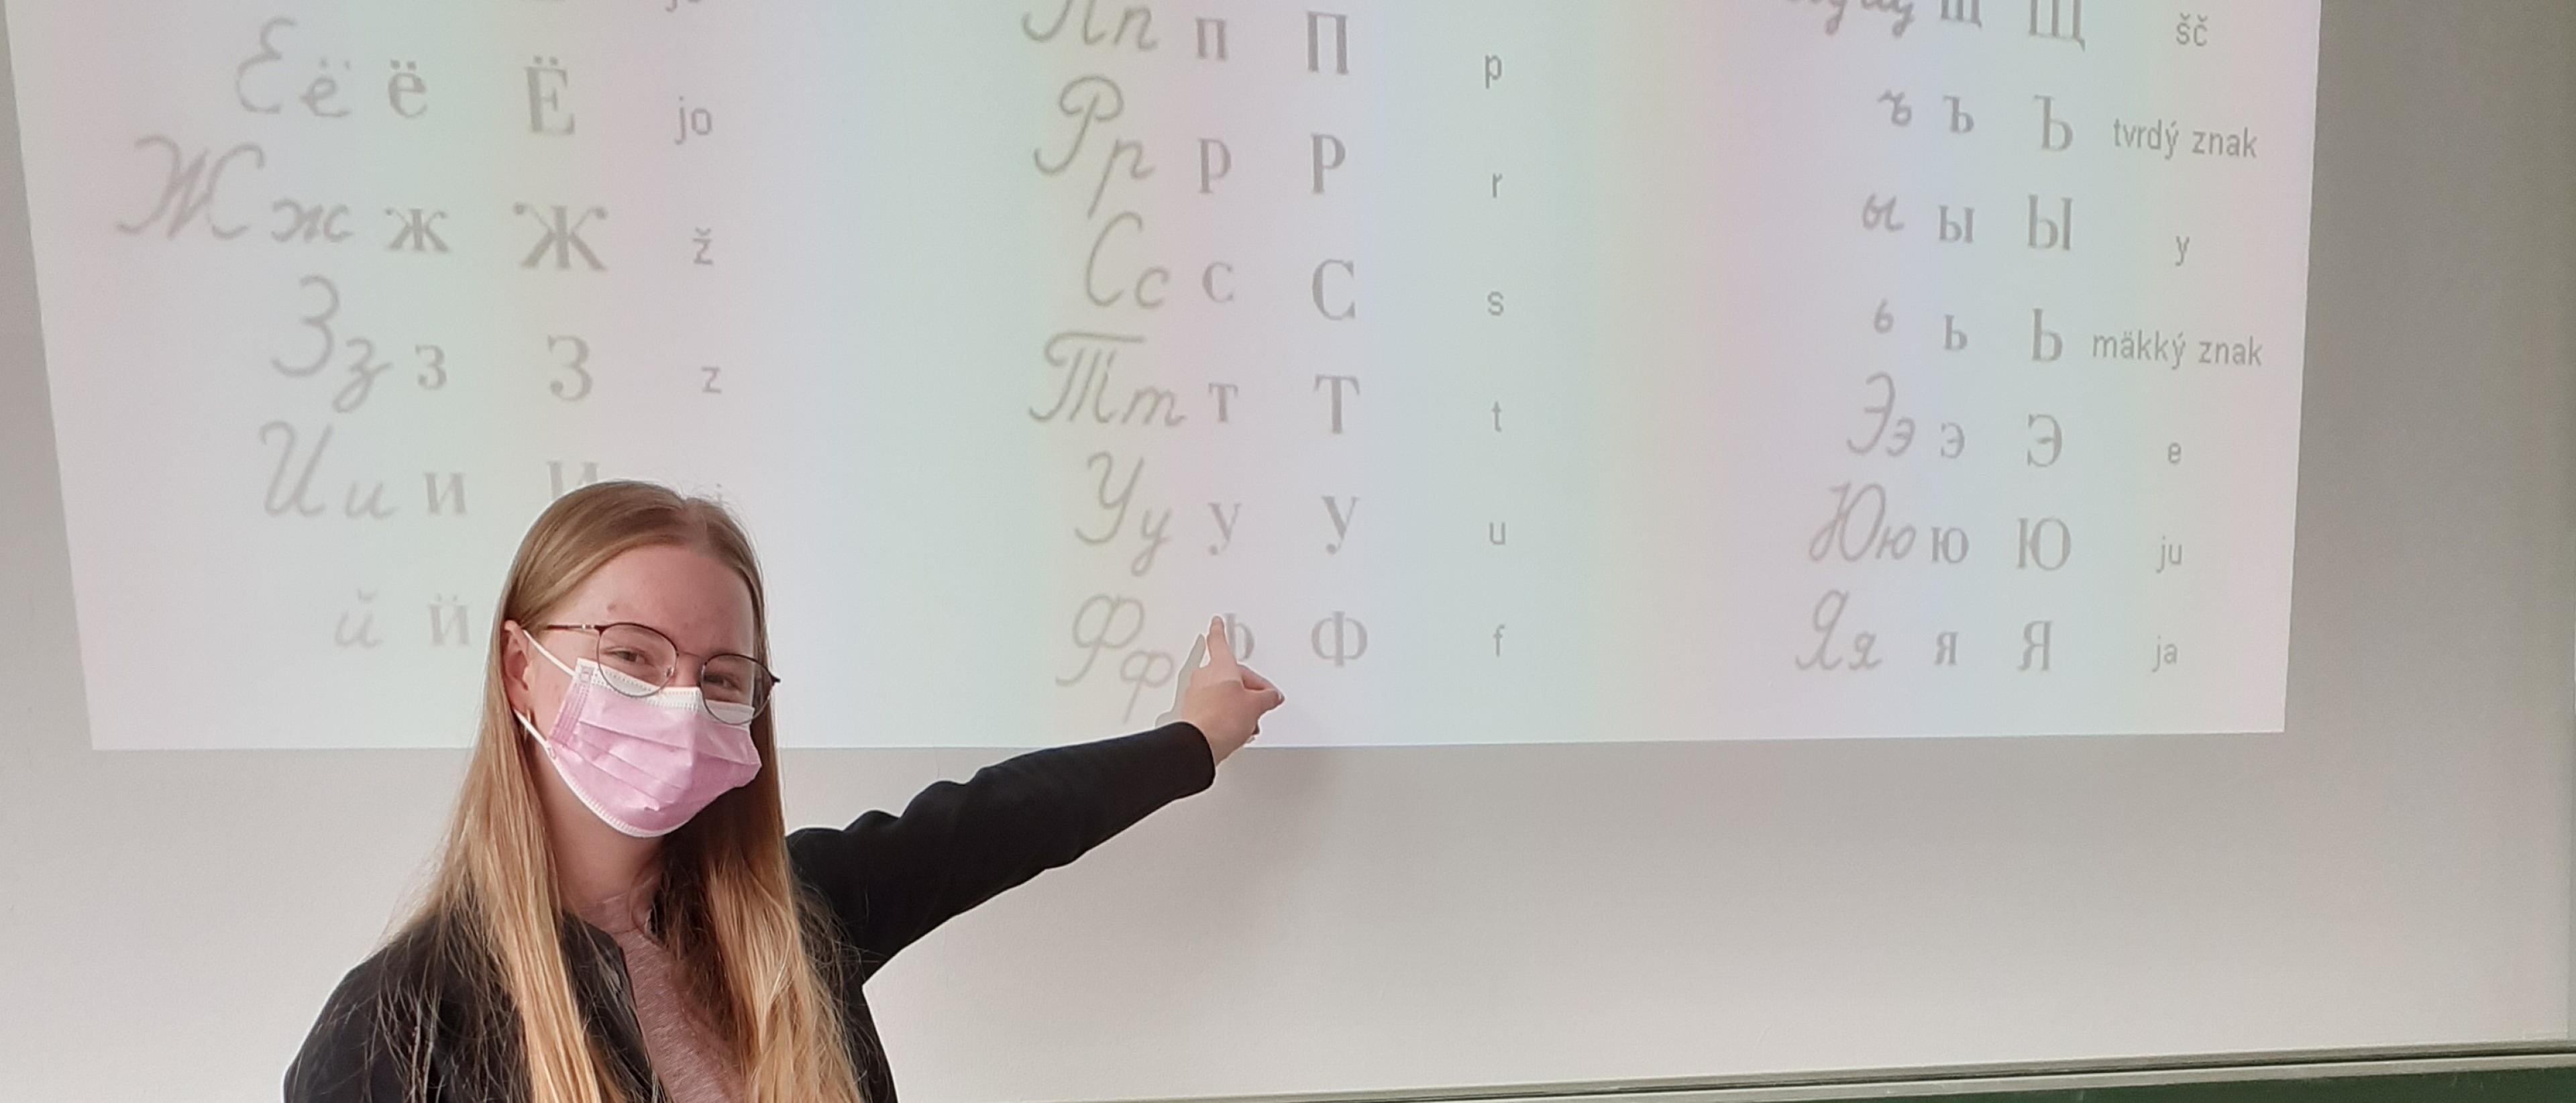 Ё ё ё Ё jo
Ж ж ж Ж ž
З з з З z
И и и И
й й
П п п П p
Р р р Р r
С с с С s
Т т т Т t
У у у У u
Ф ф ф Ф f
щ Щ šč
ъ ъ Ъ tvrdý znak
ы ы Ы y
ь ь Ь mäkký znak
Э э э Э e
Ю ю ю Ю ju
Я я я Я ja